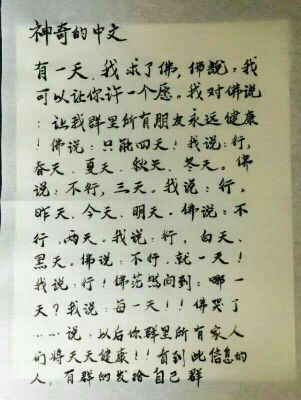 神奇的中文
有一天、我求了佛，佛說：我
可以让你许一个愿。我对佛说
：让我群里所有朋友永远健康
！佛说：只能四天！我说：行，
春天、夏天、秋天、冬天。佛
说：不行，三天。我说：行，
昨天、今天、明天。佛说：不
行，两天。我说：行，白天、
黑天。佛说：不行，就一天！
我说：行！佛茫然问到：哪一
天？我说：每一天！！佛哭了
……说：以后你群里所有家人
们将天天健康！！看到此信息的
人，有群的发给自己群